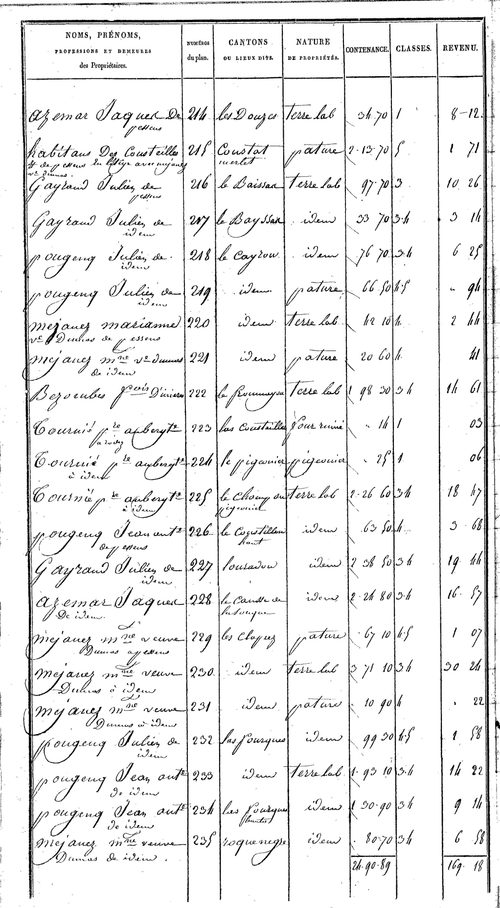 NOMS, PRÉNOMS, PROFESSIONS ET DEMEURES des Propriétaires. NUMÉROS du plan. CANTONS OU LIEUX DITS. NATURE DE PROPRIÉTÉS. CONTENANCE. CLASSES. REVENU.
azemar Jaques De 214 les Douzes terre lab 34.70 1 8-12
pessens
habitans Des Cousteilles 215 Coustat pature 2.13.70 5 1 71
Gayraud Julien de 216 le Baissac Terre lab 97.70 3 10 26
pessens
Gayraud Julien de 217 le Bayssac idem 33 70 3.4 3 14
idem
pougenq Julien de 218 le Cayrou idem 76 70 3.4 6 25
idem
pougenq Julien de 219 idem pature 66 50 4.5 94
idem
mejanez marianne 220 idem terre lab 42 10 4 2 44
ve Dumas de pessens
mejanez mne ve Dumas 221 idem pature 20 60 4 41
de idem
222 terre lab 1 98 30 3.4 14 61
Tournié pre aubergte 223 las Cousteilles four ruiné 14 1 03
Tournié pre aubergte 224 le pigeonier pigeonier 25 1 06
à idem
Tournié pre aubergte 225 le Champ du terre lab 2-26 60 3.4 18 47
à idem pigeonier
pougenq Jean ante 226 idem 63 50 4 3-68
de pessens haut
Gayraud Julien de 227 idem 2 38 50 3.4 19 44
idem
azemar Jaques 228 le Causse de idem 2-24 80 3.4 16-57
De idem
mejanez mne veuve 229 les Clapiez pature 67 10 4.5 1 07
Dumas a pessens
mejanez mne veuve 230 idem terre lab 3 71 10 3.4 30 24
Dumas à idem
mejanez mne veuve 231 idem pature 10 90 4 22
Dumas à idem
pougenq Julien de 232 las fourques idem 99 30 4.5 1 58
idem
pougenq Jean ante 233 idem terre lab 1.93 10 3.4 14 22
de idem
pougenq Jean ante 234 las fourques idem 1 30.90 3.4 9 14
de idem hautes
mejanez mne veuve 235 roquenegre idem 80-70 3.4 6 58
Dumas de idem.
24.90.89 169.18